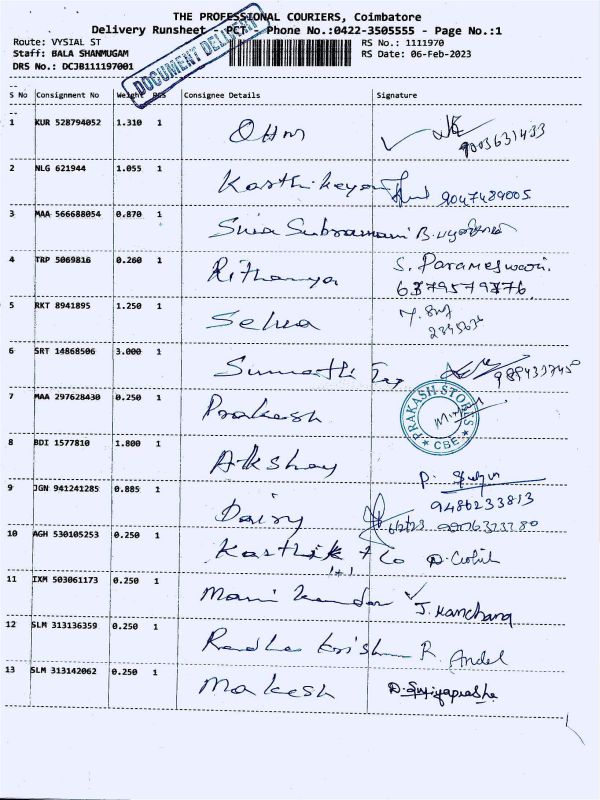 THE PROFESSIONAL COURIERS, Coimbatore
Delivery Runsheet - PCT - Phone No.:0422-3505555 - Page No.:1
Route: VYSIAL ST RS No.: 1111970
Staff: BALA SHANMUGAM RS Date: 06-Feb-2023
DRS No.: DCJB111197001
DOCUMENT DELIVERY
S No Consignment No Weight Pcs Consignee Details Signature
1 KUR 528794052 1.310 1 Ohm 9003631433
2 NLG 621944 1.055 1 Karthikeyan 9047489005
3 MAA 566688054 0.870 1 Siva Subramani
4 TRP 5069816 0.260 1 Rithanya S. Parameswari.
6379579776.
5 RKT 8941895 1.250 1 Selva
6 SRT 14868506 3.000 1 Sumathi Tex
7 MAA 297628430 0.250 1 Prakash
PRAKASH STORES CBE
8 BDI 1577810 1.800 1 Akshay
9486233813
9 JGN 941241285 0.885 1 Dairy
10 AGH 530105253 0.250 1 Karthik + Co
1+1
11 IXM 503061173 0.250 1 Mani J. Kanchana
12 SLM 313136359 0.250 1 Radha Krishnan R.
13 SLM 313142062 0.250 1 Makesh